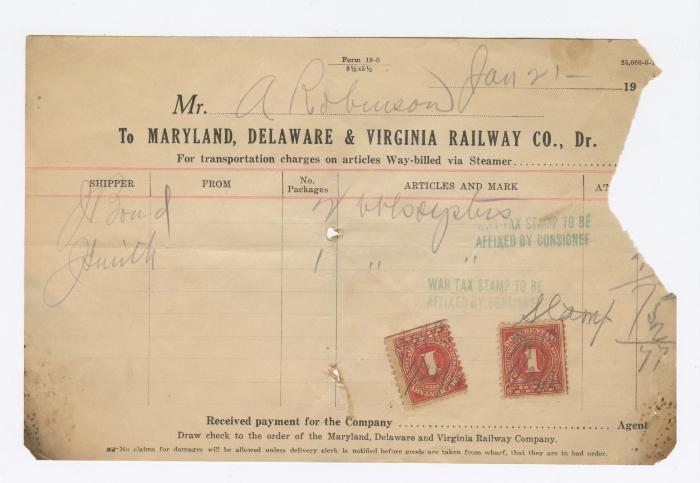 Form 19-S
8½x5½
25,000-6-
Jan 21- 19
Mr. A Robinson
To MARYLAND, DELAWARE & VIRGINIA RAILWAY CO., Dr.
For transportation charges on articles Way-billed via Steamer
SHIPPER FROM No. Packages ARTICLES AND MARK AT
J Bond 2 bbls oysters
WAR TAX STAMP TO BE
AFFIXED BY CONSIGNEE
J Smith 1 " "
WAR TAX STAMP TO BE
AFFIXED BY CONSIGNEE
Stamp
1 1
Received payment for the Company Agent
Draw check to the order of the Maryland, Delaware and Virginia Railway Company.
No claims for damages will be allowed unless delivery clerk is notified before goods are taken from wharf, that they are in bad order.